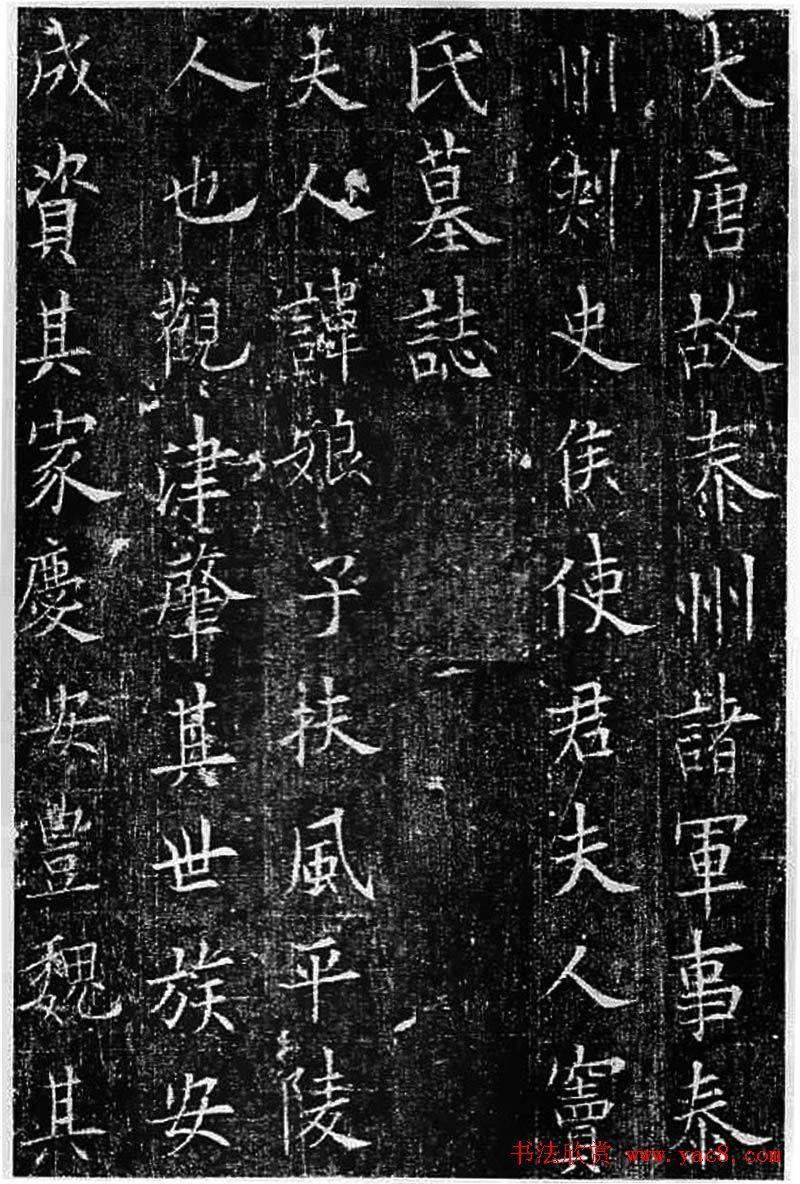 大唐故泰州諸軍事泰
州刺史侯使君夫人竇
氏墓誌
夫人諱娘子扶風平陵
人也觀津肇其世族安
成資其家慶安豐魏其
书法欣赏 www.yac8.com